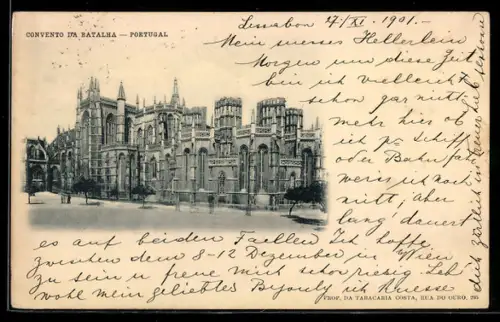 CONVENTO DA BATALHA — PORTUGAL
Lissabon 27/XI. 1901.-
Mein süsses Hellerlein
Morgen um diese Zeit
bin ich vielleicht
schon gar nicht
mehr hier ob
ich pr Schiff
oder Bahn fahre
weiss ich noch
nicht, aber
lang dauert
es auf beiden Faellen Ich hoffe
zwischen dem 8-12 Dezember in Wien
zu sein u freue mich schon riesig. Leb
wohl mein geliebtes
dich zärtlich
PROF. DA TABACARIA COSTA, RUA DO OURO, 295